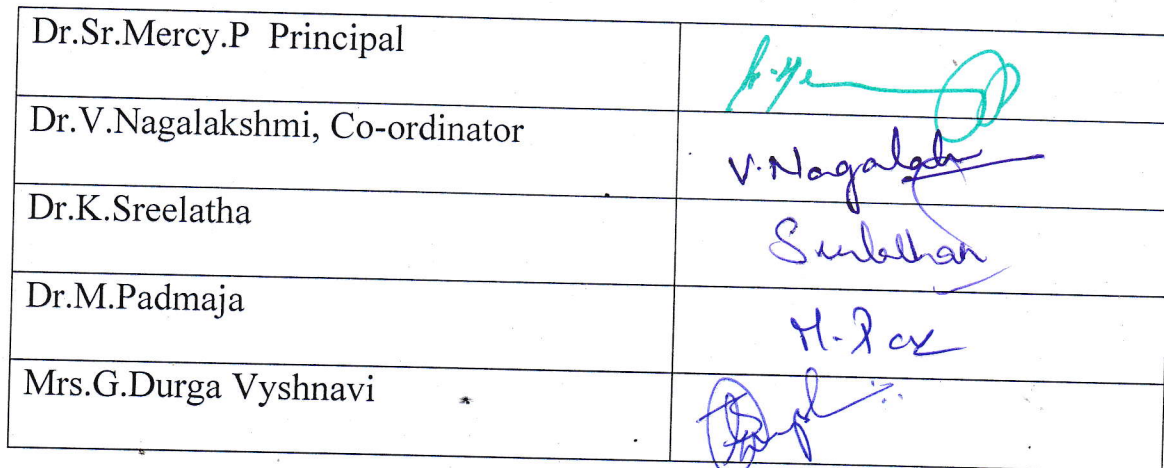 Dr.Sr.Mercy.P Principal
Dr.V.Nagalakshmi, Co-ordinator
V.Nagalak
Dr.K.Sreelatha
Dr.M.Padmaja
M.Pa
Mrs.G.Durga Vyshnavi